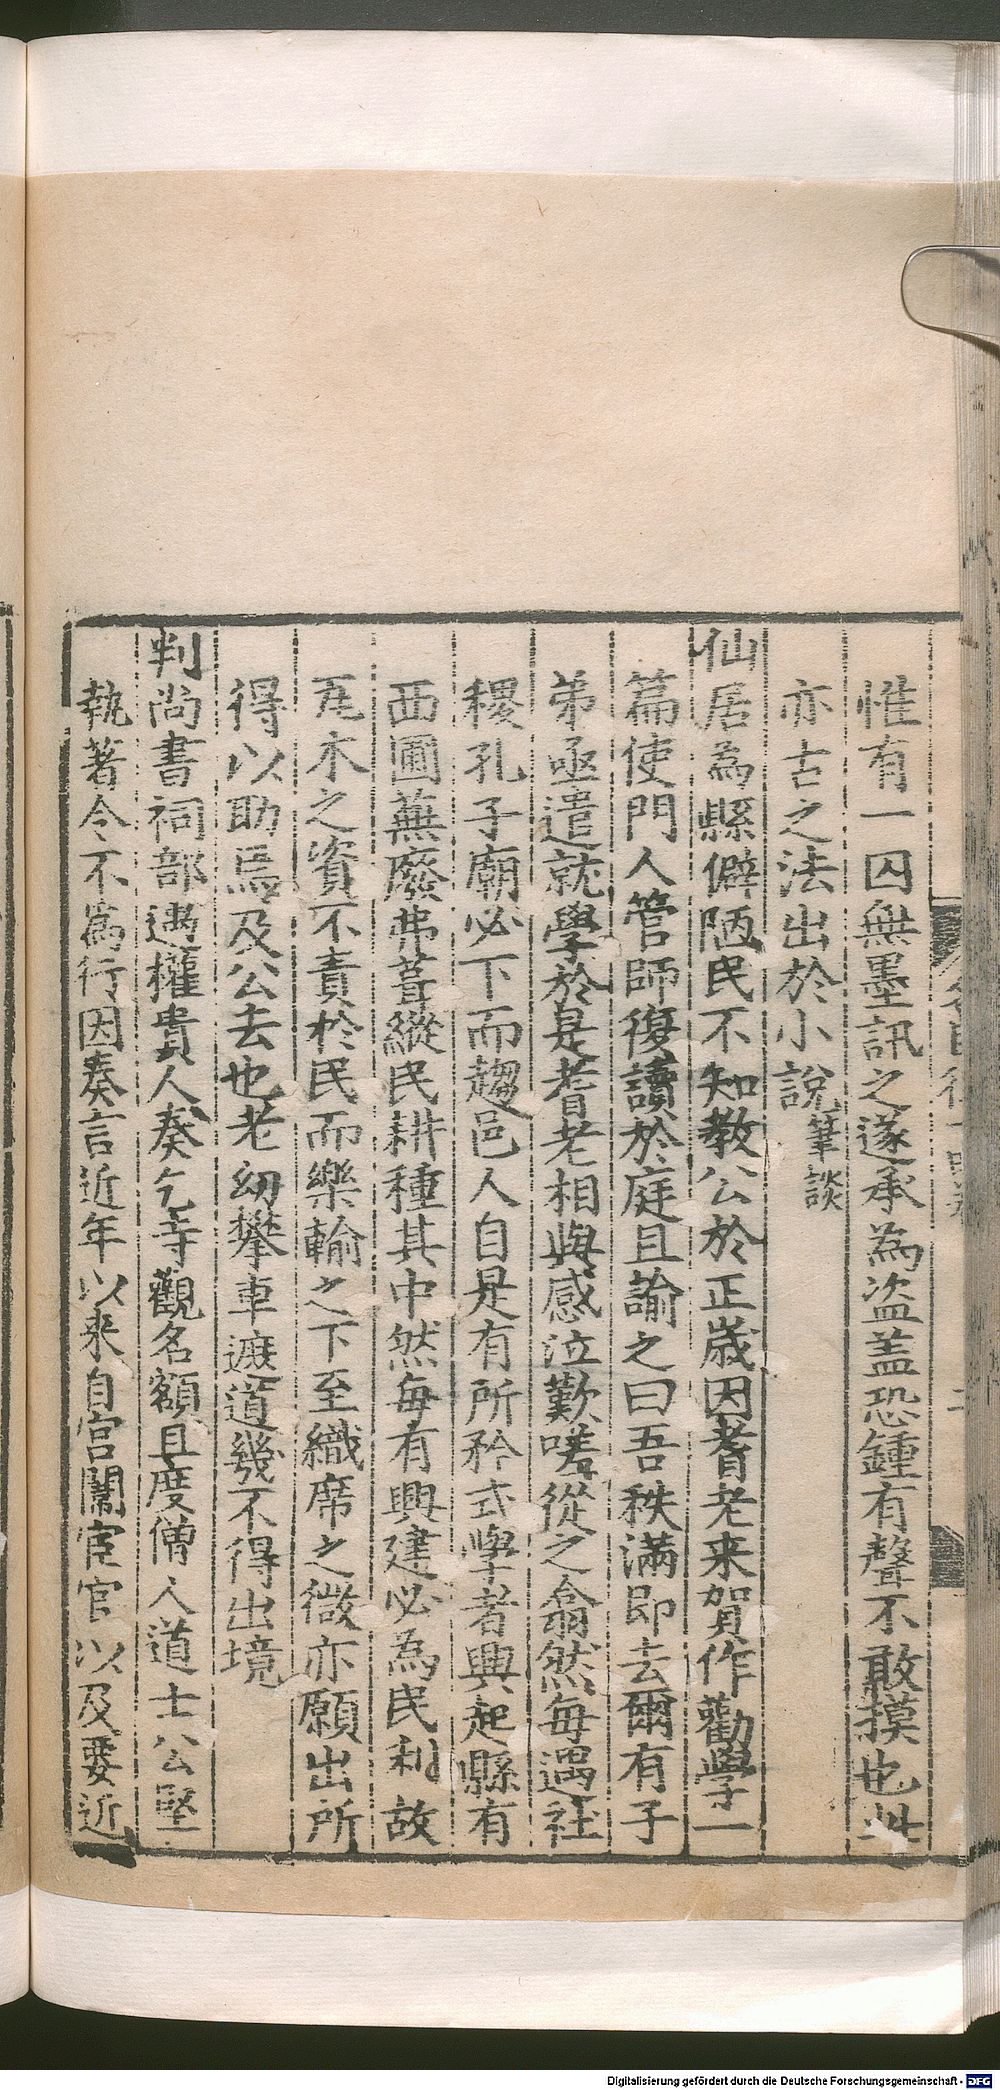 惟有一囚無墨訊之遂承為盗盖恐鍾有聲不敢摸也此
亦古之法出於小說筆談
仙居為縣僻陋民不知教公於正歳因耆老来賀作勸學一
篇使門人管師復讀於庭且諭之曰吾秩滿即去爾有子
弟亟遣就學於是耆老相與感泣歎嗟從之翕然每遇社
稷孔子廟必下而趨邑人自是有所矜式學者興起縣有
西圃蕪廢弗葺縱民耕種其中然每有興建必為民利故
瓦木之資不責於民而樂輸之下至織席之微亦願出所
得以助焉及公去也老幼攀車遮道幾不得出境
判尚書祠部遇權貴人奏乞寺觀名額且度僧人道士公堅
執著令不為行因奏言近年以来自宫闈宦官以及要近
Digitalisierung gefördert durch die Deutsche Forschungsgemeinschaft - DFG